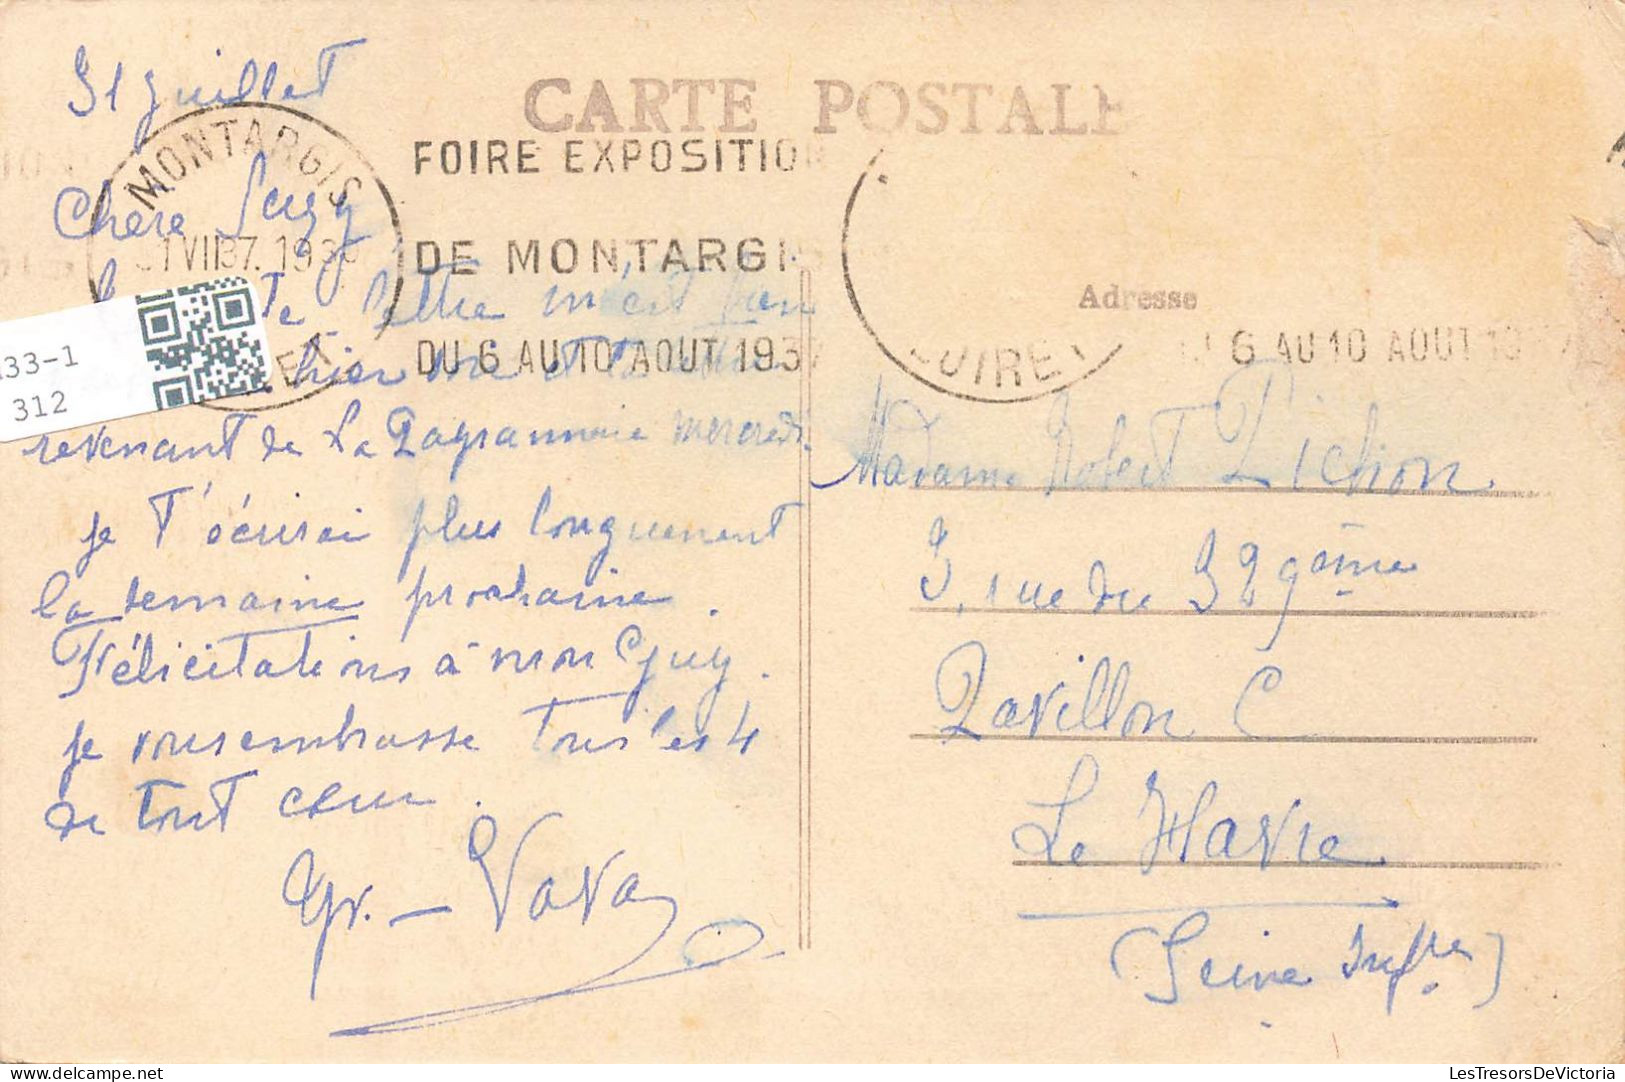 31 Juillet
CARTE POSTALE
MONTARGIS
FOIRE EXPOSITION
Chère Suzy
31 VII 37. 1930
DE MONTARGIS
lettre m'est
Adresse
33-1
312
hier
DU 6 AU 10 AOUT 1937
LOIRET
6 AU 10 AOUT 1937
revenant de La mercredi.
je t'écrirai plus longuement
la semaine prochaine.
Félicitations à mon Guy.
je vous embrasse tous les 4
de tout cœur.
Gr. - Vava
Madame Robert Pichon
3, rue du 329ème
Pavillon C
Le Havre
(Seine Infre)
delcampe.net
LesTresorsDeVictoria